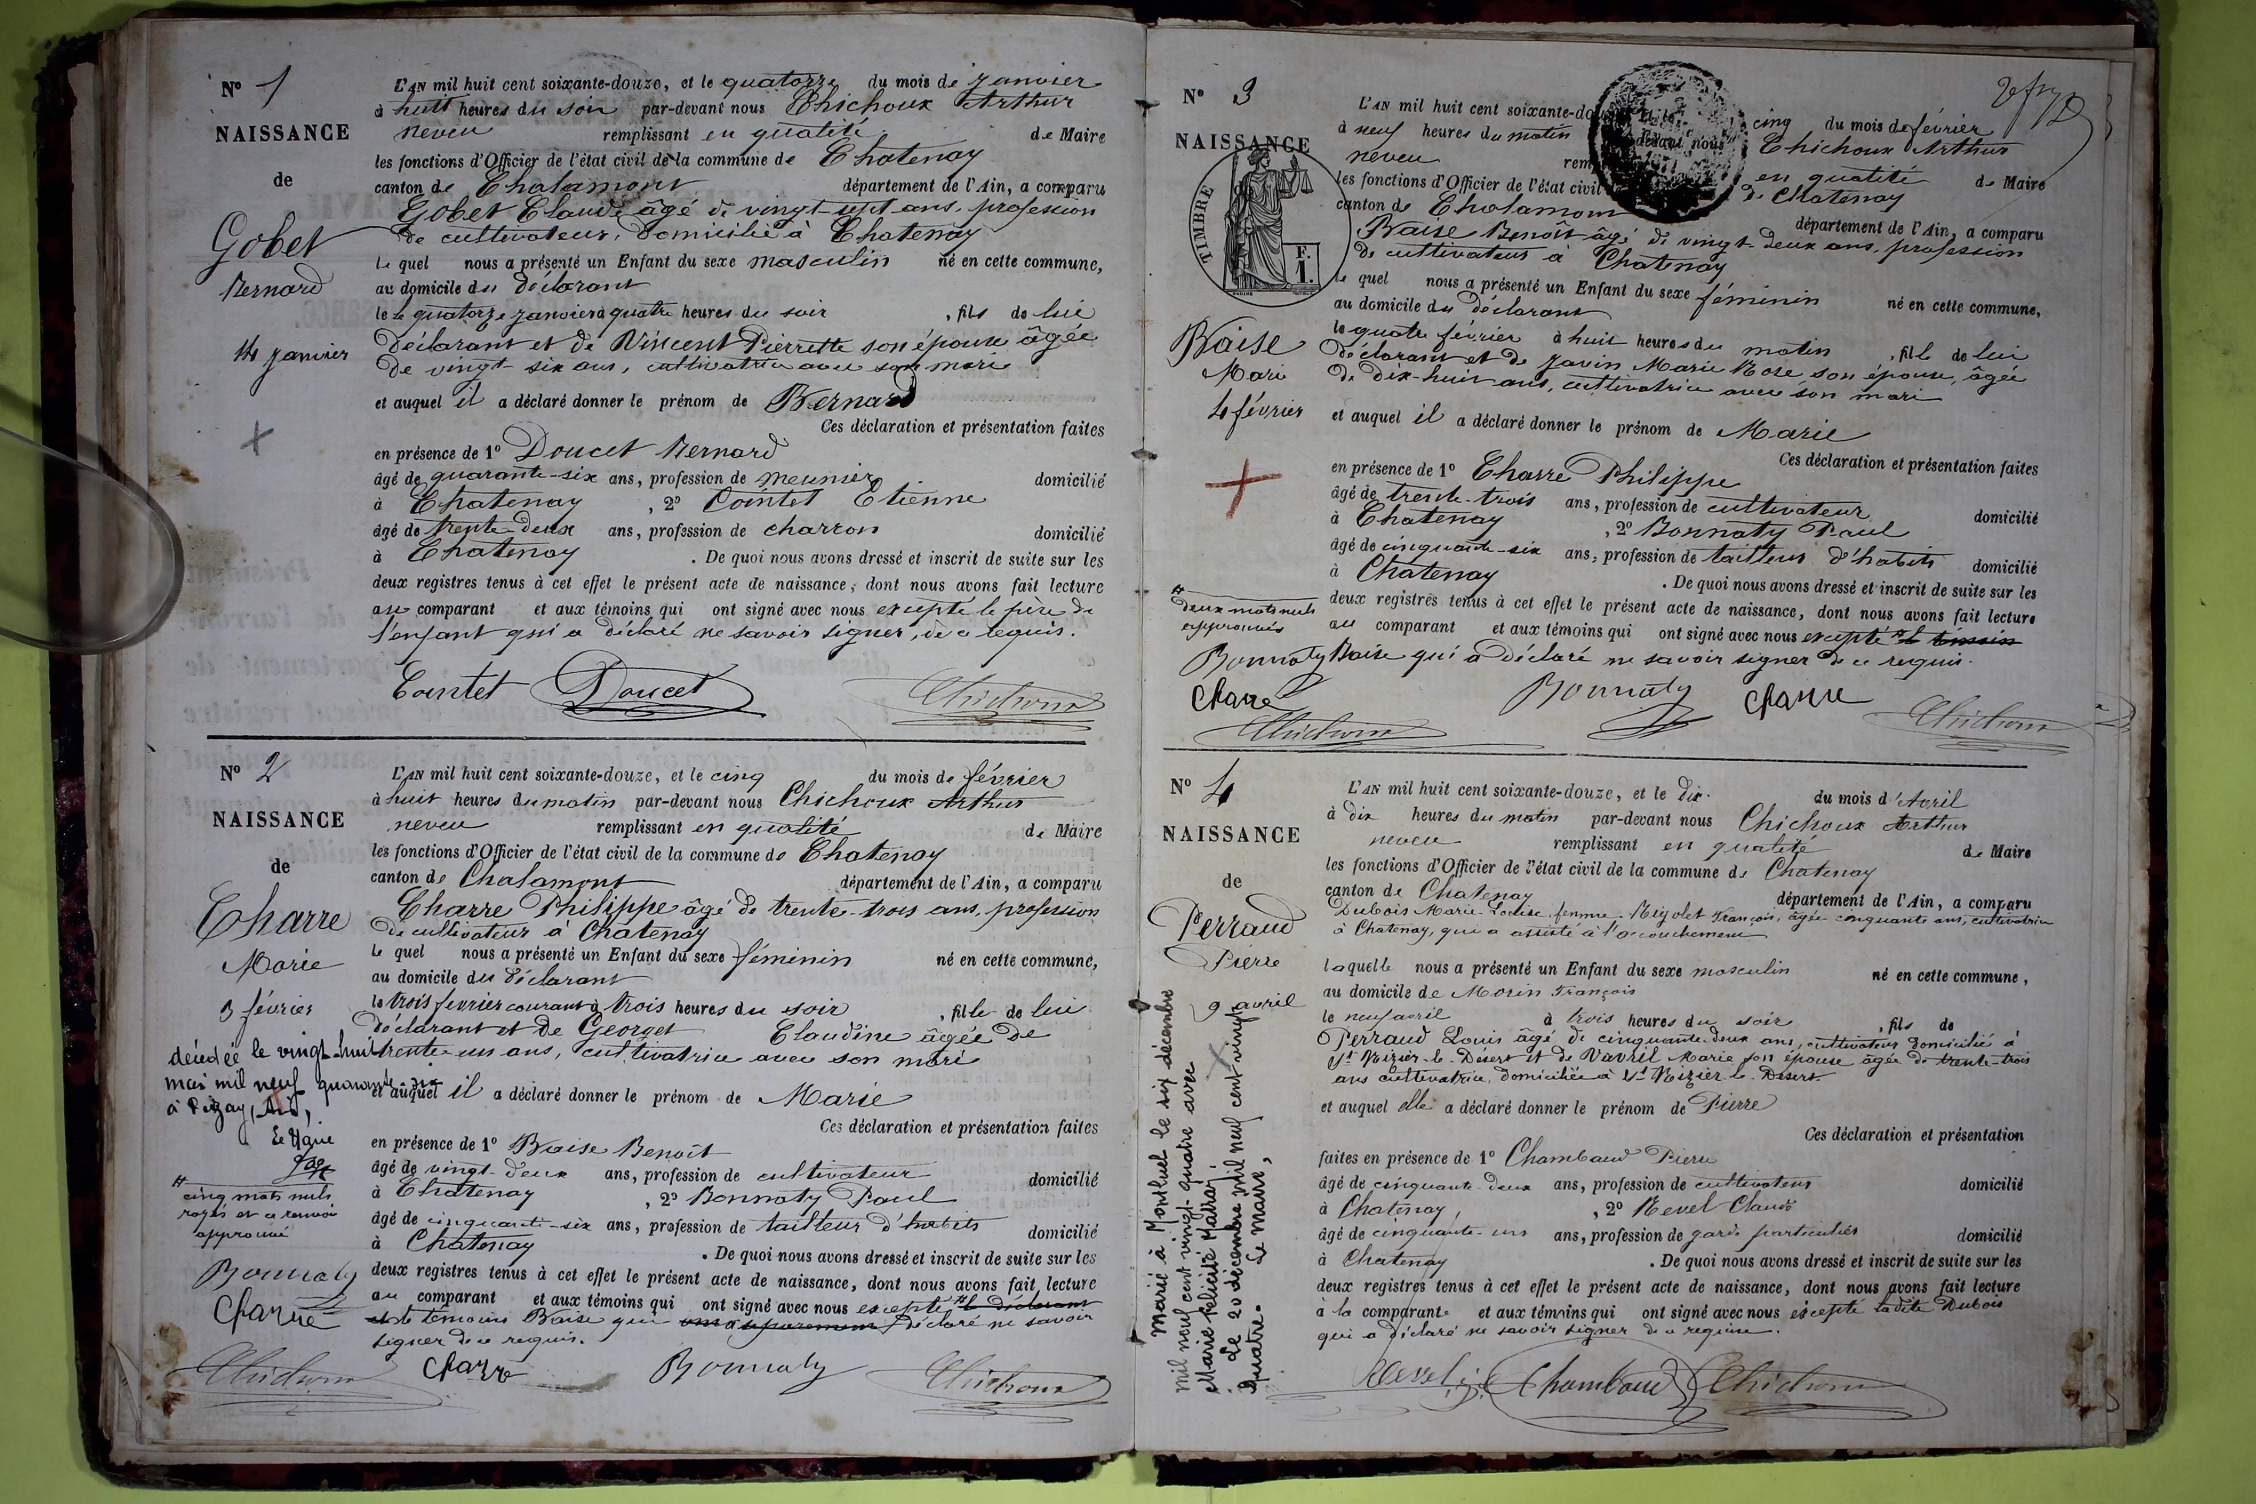 N° 1
NAISSANCE
de
Gobet
Bernard
14 janvier
L'AN mil huit cent soixante-douze, et le quatorze du mois de janvier
à huit heures du soir par-devant nous Chichoux Arthur
neveu remplissant en qualité de Maire
les fonctions d'Officier de l'état civil de la commune de Chatenay
canton de Chalamont département de l'Ain, a comparu
Gobet Claude âgé de vingt-sept ans, profession
de cultivateur, domicilié à Chatenay
le quel nous a présenté un Enfant du sexe masculin né en cette commune,
au domicile du déclarant
le quatorze janvier à quatre heures du soir , fils de lui
déclarant et de Vincent Pierrette son épouse âgée
de vingt-six ans, cultivatrice avec son mari
et auquel il a déclaré donner le prénom de Bernard
Ces déclaration et présentation faites
en présence de 1° Doucet Bernard
âgé de quarante-six ans, profession de meunier domicilié
à Chatenay , 2° Cointet Etienne
âgé de trente-deux ans, profession de charron domicilié
à Chatenay . De quoi nous avons dressé et inscrit de suite sur les
deux registres tenus à cet effet le présent acte de naissance, dont nous avons fait lecture
au comparant et aux témoins qui ont signé avec nous excepté le père de
l'enfant qui a déclaré ne savoir signer, de ce requis.
Cointet Doucet Chichoux
N° 2
NAISSANCE
de
Charre
Marie
3 février
décédée le vingt-huit
mai mil neuf quarante six
à Pizay, Ain,
Le Maire
cinq mots nuls
rayés et ce renvoi
approuvé
Bonnaty
Charre
L'AN mil huit cent soixante-douze, et le cinq du mois de février
à huit heures du matin par-devant nous Chichoux Arthur
neveu remplissant en qualité de Maire
les fonctions d'Officier de l'état civil de la commune de Chatenay
canton de Chalamont département de l'Ain, a comparu
Charre Philippe âgé de trente-trois ans, profession
de cultivateur à Chatenay
le quel nous a présenté un Enfant du sexe féminin né en cette commune,
au domicile du déclarant
le trois février courant à trois heures du soir , fille de lui
déclarant et de Georget Claudine âgée de
trente-un ans, cultivatrice avec son mari
et auquel il a déclaré donner le prénom de Marie
Ces déclaration et présentation faites
en présence de 1° Baise Benoît
âgé de vingt-deux ans, profession de cultivateur domicilié
à Chatenay , 2° Bonnaty Paul
âgé de cinquante-six ans, profession de tailleur d'habits domicilié
à Chatenay . De quoi nous avons dressé et inscrit de suite sur les
deux registres tenus à cet effet le présent acte de naissance, dont nous avons fait lecture
au comparant et aux témoins qui ont signé avec nous excepté le déclarant
et le témoin Baise qui ont séparément déclaré ne savoir
signer de ce requis.
Chichoux Charre Bonnaty Chichoux
N° 3
NAISSANCE
TIMBRE
F.
1.
Baise
Marie
4 février
deux mots nuls
approuvés
L'AN mil huit cent soixante-douze, et le cinq du mois de février
à neuf heures du matin par-devant nous Chichoux Arthur
neveu remplissant en qualité de Maire
les fonctions d'Officier de l'état civil de Chatenay
canton de Chalamont département de l'Ain, a comparu
Baise Benoît âgé de vingt-deux ans, profession
de cultivateur à Chatenay
le quel nous a présenté un Enfant du sexe féminin né en cette commune,
au domicile du déclarant
le quatre février à huit heures du matin , fille de lui
déclarant et de Javin Marie Rose son épouse, âgée
de dix-huit ans, cultivatrice avec son mari
et auquel il a déclaré donner le prénom de Marie
Ces déclaration et présentation faites
en présence de 1° Charre Philippe
âgé de trente-trois ans, profession de cultivateur domicilié
à Chatenay , 2° Bonnaty Paul
âgé de cinquante-six ans, profession de tailleur d'habits domicilié
à Chatenay . De quoi nous avons dressé et inscrit de suite sur les
deux registres tenus à cet effet le présent acte de naissance, dont nous avons fait lecture
au comparant et aux témoins qui ont signé avec nous excepté le témoin
Bonnaty Baise qui a déclaré ne savoir signer de ce requis.
Charre Bonnaty Charre
Chichoux Chichoux
N° 4
NAISSANCE
de
Perraud
Pierre
9 avril
Marié à Montluel le six décembre
mil neuf cent vingt-quatre avec
Marie Félicité Mathay
Le 20 décembre mil neuf cent vingt
quatre. Le Maire,
L'AN mil huit cent soixante-douze, et le dix du mois d'Avril
à dix heures du matin par-devant nous Chichoux Arthur
neveu remplissant en qualité de Maire
les fonctions d'Officier de l'état civil de la commune de Chatenay
canton de Chatenay département de l'Ain, a comparu
Dubois Marie Louise femme Rigolet François, âgée cinquante ans, cultivatrice
à Chatenay, qui a assisté à l'accouchement
laquelle nous a présenté un Enfant du sexe masculin né en cette commune,
au domicile de Morin François
le neuf avril à trois heures du soir , fils de
Perraud Louis âgé de cinquante-deux ans, cultivateur domicilié à
St Nizier-le-Désert et de Vavril Marie son épouse âgée de trente-trois
ans cultivatrice, domiciliée à St Nizier-le-Désert
et auquel elle a déclaré donner le prénom de Pierre
Ces déclaration et présentation
faites en présence de 1° Chambaud Pierre
âgé de cinquante-deux ans, profession de cultivateur domicilié
à Chatenay, , 2° Revel Claude
âgé de cinquante-uns ans, profession de garde particulier domicilié
à Chatenay . De quoi nous avons dressé et inscrit de suite sur les
deux registres tenus à cet effet le présent acte de naissance, dont nous avons fait lecture
à la comparante et aux témoins qui ont signé avec nous excepté ladite Dubois
qui a déclaré ne savoir signer de ce requise.
Chambaud Chichoux